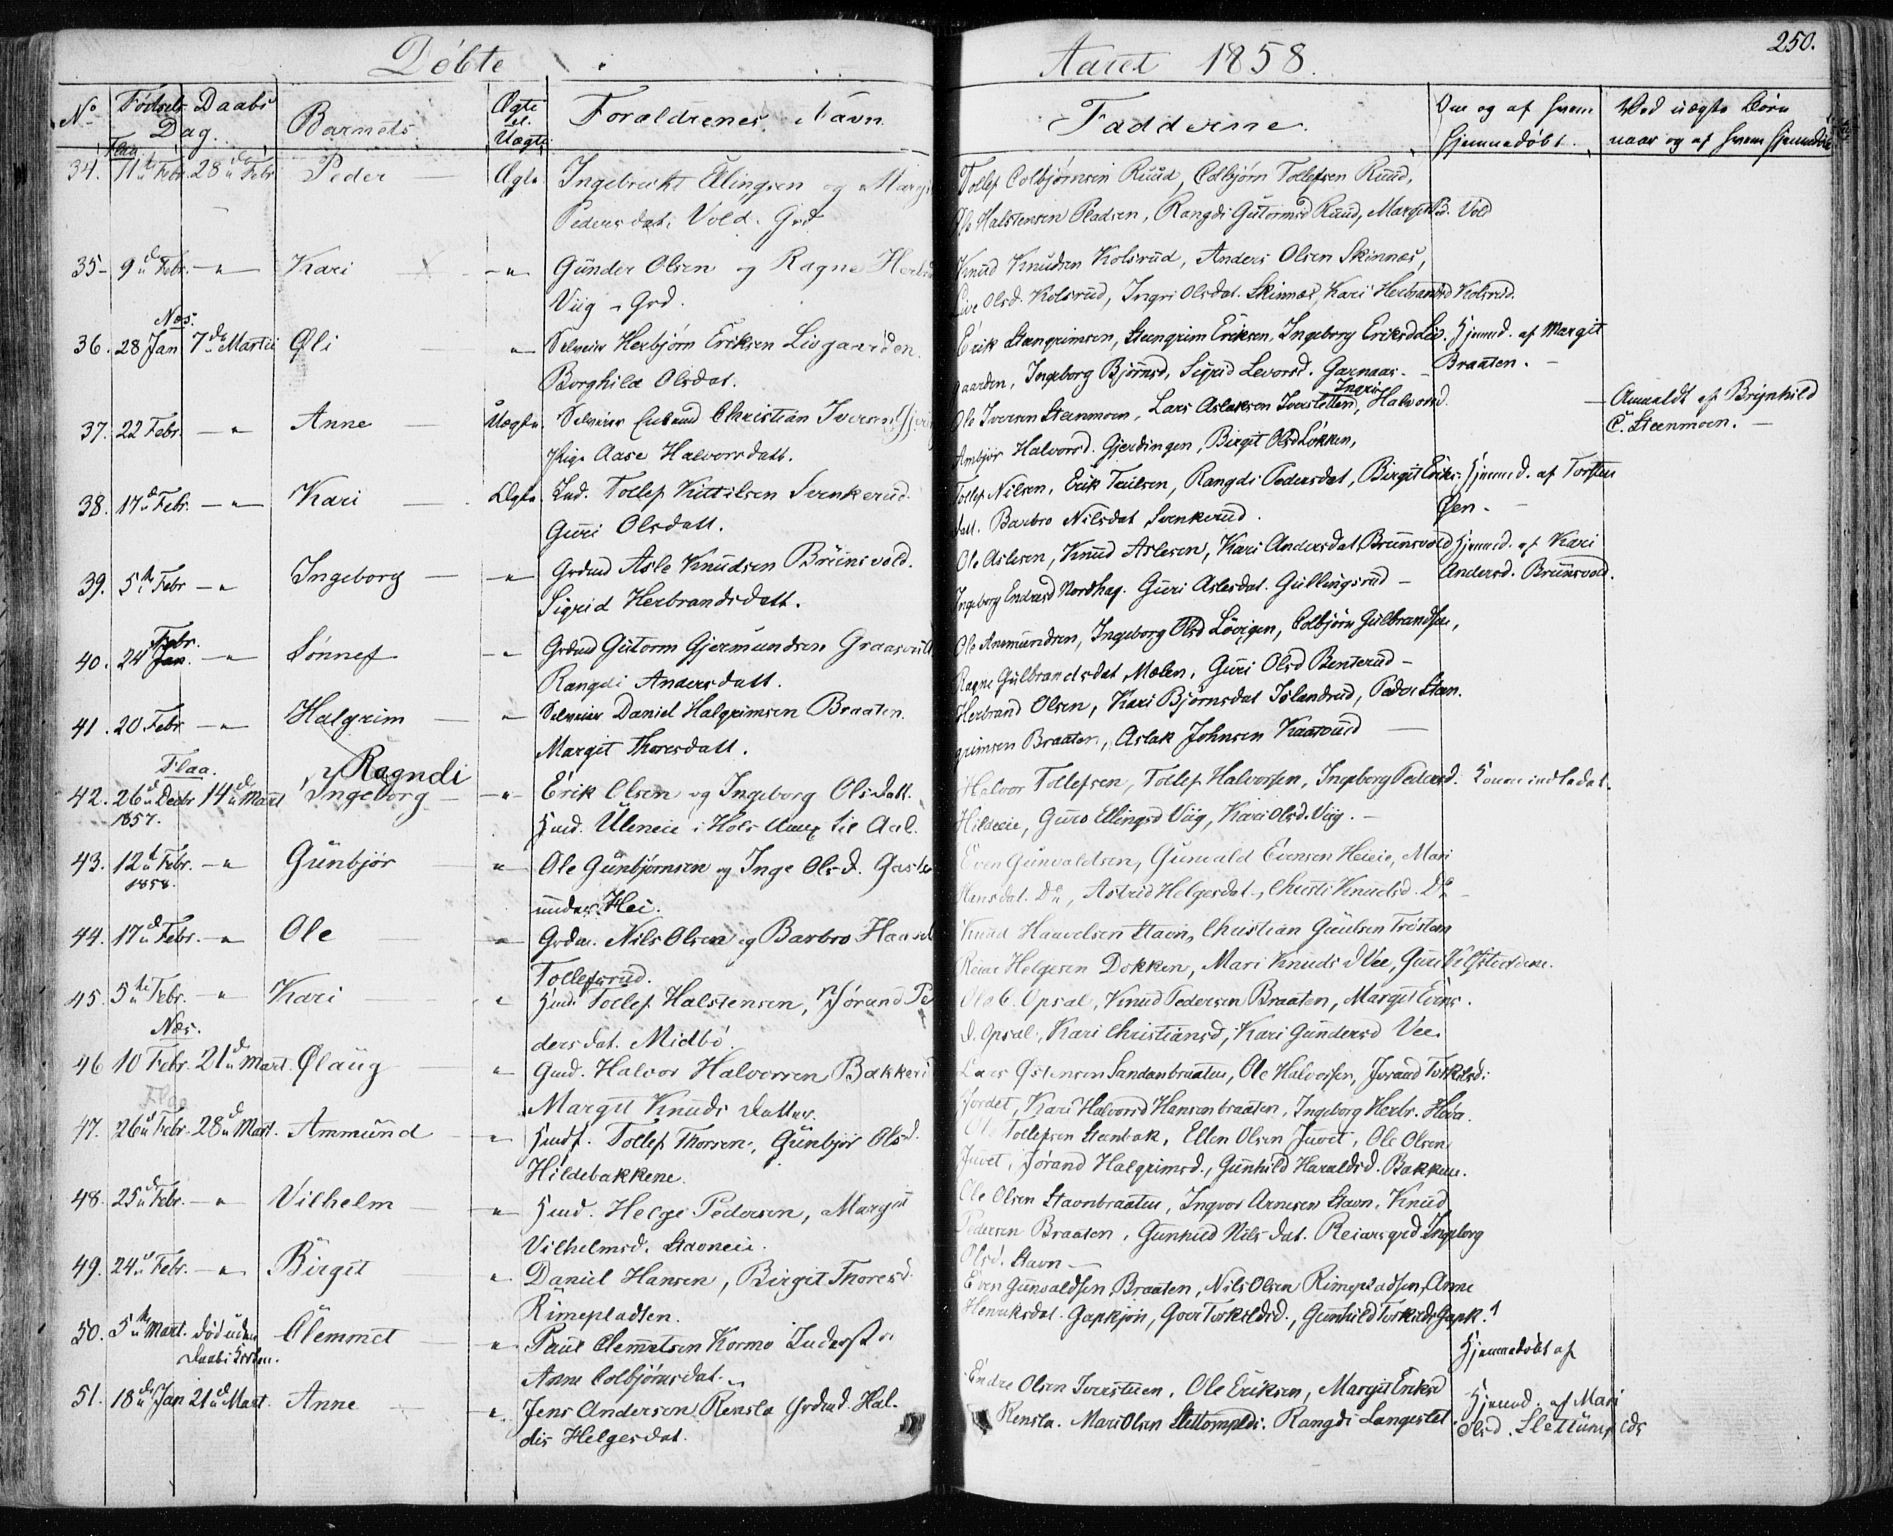 Døbte
Aaret 1858.
250.
No
Fødsels Daabs
Dag.
Barnets
Ægte
el.
Uægte
Forældrenes Navn
Faddderne.
Om og af hvem
hjemmedøbt.
Ved uægte Børn
naar og af hvem
Flaa
34. 11te Febr. 28de Febr Peder Ægte Ingebreckt Ellingsen og Margit
Pedersdat. Vold. Grd
Tollef Colbjørnsen Ruud, Colbjørn Tollefsen Ruud,
Halstensen Pladsen, Rangdi Gutormsd Ruud, Margit Vold
35 - 9de Febr. - " - Kari - " Gunder Olsen og Ragne
Viig - Grd.
Knud Knudsen Kolsrud, Anders Olsen Skinnes,
Live Olsd. Kolsrud, Ingri Olsdat. Skinnæs, Kari Kolsrud.
Næs.
36. 28 Jan 7de Martii Oli " Selveier Herbjørn Eriksen Livgaarden.
Borghild Olsdat.
Erik Steengrimsen, Steengrim Eriksen, Ingeborg Eriksd Liv- Hjemmed. af Margit
gaarden, Ingeborg Bjørnsd, Sigrid Levorsd. Garnaas. - Braaten. -
37. 22 Febr. - " Anne Uægte. Selveier Christian Iversen
Pige Aase Halvorsdatt.
Ingri
Ole Iversen Steenmoen, Lars Aslaksen Iversletten, Halvorsd.
Ambjør Halvorsd. Gjerdingen, Birgit Olsd Løkken,
- Anmeldt af Brynhild
C. Steenmoen. -
38. 17de Febr. - " - Kari Ægte. Ind. Tollef Kittilsen Svenkerud
Guri Olsdatt.
Tollef Nilsen, Erik Paulsen, Rangdi Pedersdat, Birgit Eriks- Hjemmed. af Torsten
datt. Barbro Nilsdat Svenkerud. Øen. -
39. 5te Febr - " Ingeborg - " Grdmd Asle Knudsen Bruunsvold.
Sigrid Herbrandsdatt.
Ole Aslesen, Knud Aslesen, Kari Andersdat Bruunsvold Hjemmed. af Kari
Ingeborg Endresd Nordhag. Guri Aslesdat. Gullingsrud - Andersd. Bruunsvold.
Febr.
40. 24 Jan. - " Sønnef - " Grdmd Gutorm Gjermundsen
Rangdi Andersdatt.
Ole Ammundsen, Ingeborg Olsd Løvigen, Colbjørn Gulbrandsen,
Ragne Gulbrandsdat Mælen, Guri Olsd Benterud -
41. 20 Febr - " Halgrim - " Selveier Daniel Halgrimsen Braaten.
Margit Thoresdatt.
Herbrand Olsen, Kari Bjørnsdat Islandrud, Peder Steen-
grimsen Braaten, Aslak Johnsen Kaarud -
Flaa.
Ragndi
42. 26de Decbr 14de Mart Ingeborg - " - Erik Olsen og Ingeborg Olsdatt.
1857.
Hmd. Uleneie i Hols Annex til Aal.
Halvor Tollefsen, Tollef Halvorsen, Ingeborg Pedersd. Konen indledet.
Hildeeie, Guro Ellingsd Viig, Kari Olsd. Viig. -
43. 12te Febr. - " Gunbjør " Ole Gunbjørnsen og Inge Olsd.
1858.
under Hei.
Even Gunvaldsen, Gunvald Evensen Heieie, Mari
Hansdat. Do, Astrid Helgesdat., Christi Knudsd. Do -
44. 17de Febr. - " Ole - " Grdm. Nils Olsen og Barbro
Tollefsrud.
Knud Haavelsen Stavn, Christian Trøsten
Helgesen Dokken, Mari Knudsd Vee, Guri
45. 5te Febr. - " Kari " Hmd. Tollef Halstensen, Jørand Pe-
dersdat. Midbø.
Ola C. Opsal, Knud Pedersen Braaten, Margit Evens-
d. Opsal, Kari Christiansd, Kari Gundersd Vee.
Næs.
46 10 Febr. 21de Mart. Ølaug " Gmd. Halvor Halvorsen
Margit Knuds Datter.
Lars Østensen Sandanbraaten, Ole Halvorsen, Jørand Torkelsd.
Jordet, Kari Halvorsd Hansenbraaten, Ingeborg Herbr. Hova.
Flaa
47. 26de Febr. 28de Mart. Ammund - " Husf. Tollef Thorsen, Gunbjør Olsd.
Hildebakkene.
Ole Tollefsen Steenbak, Ellen Olsen Juvet, Ole Olsen
Juvet, Jørand Halgrimsd., Gunhild Haraldsd. Bakken.
48. 25de Febr. - " Vilhelm - " Hmd. Helge Pedersen, Margit
Vilhelmsd. Stavneie.
Ole Olsen Stavnbraaten, Ingvor Arnesen Stavn, Knud
Pedersen Braaten, Gunhild Nils-dat. Reiarsgrd Ingeborg
Olsd. Stavn -
49. 24de Febr. - " Birgit " Daniel Hansen, Birgit Thoresd.
Rimepladsen.
Even Gunvaldsen Braaten, Nils Olsen Rimepladsen, Anne
Henriksdat. Gapkjøn, Goer Torkildsd., Gunhild Torkilds Gapk.
50. 5te Mart. Død uden Clemmet - " Paul Clemmetsen Kormo Inderst
Daab
Anne Colbjørnsdat.
Hjemmedøbt af
51. 18de Jan 21de Mart. Anne " Jens Andersen Rensla Grdmd. Hal-
dis Helgesdat.
Endre Olsen Iversteien, Ole Eriksen, Margit Eriksd
Rensla. Mari Olsen Rangdi Langestet
Hjemmed. af Mari
Olsd.